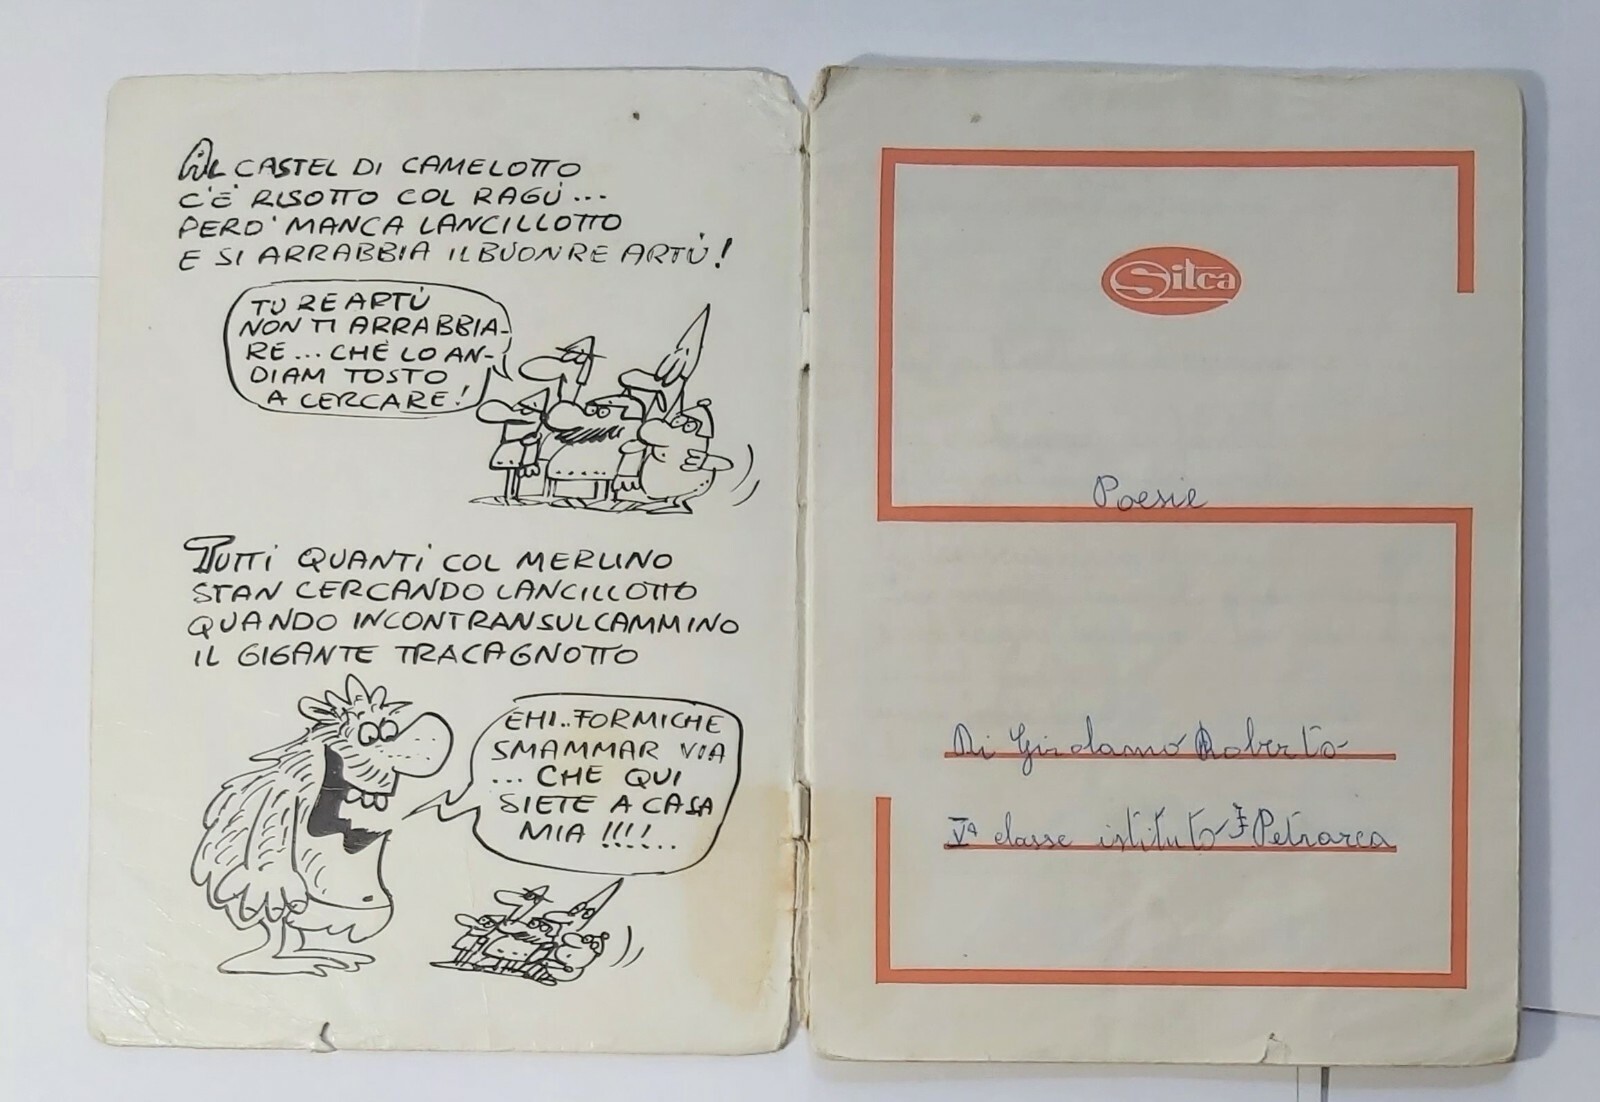 AL CASTEL DI CAMELOTTO
C'È RISOTTO COL RAGÙ...
PERO' MANCA LANCILLOTTO
E SI ARRABBIA IL BUON RE ARTÙ!
TU RE ARTÙ
NON TI ARRABBIA-
RE... CHÈ LO AN-
DIAM TOSTO
A CERCARE!
TUTTI QUANTI COL MERLINO
STAN CERCANDO LANCILLOTTO
QUANDO INCONTRAN SUL CAMMINO
IL GIGANTE TRACAGNOTTO
EHI.. FORMICHE
SMAMMAR VIA
... CHE QUI
SIETE A CASA
MIA !!!!..
Silca
Poesie
Di Girolamo Roberto
Vª classe istituto F Petrarca